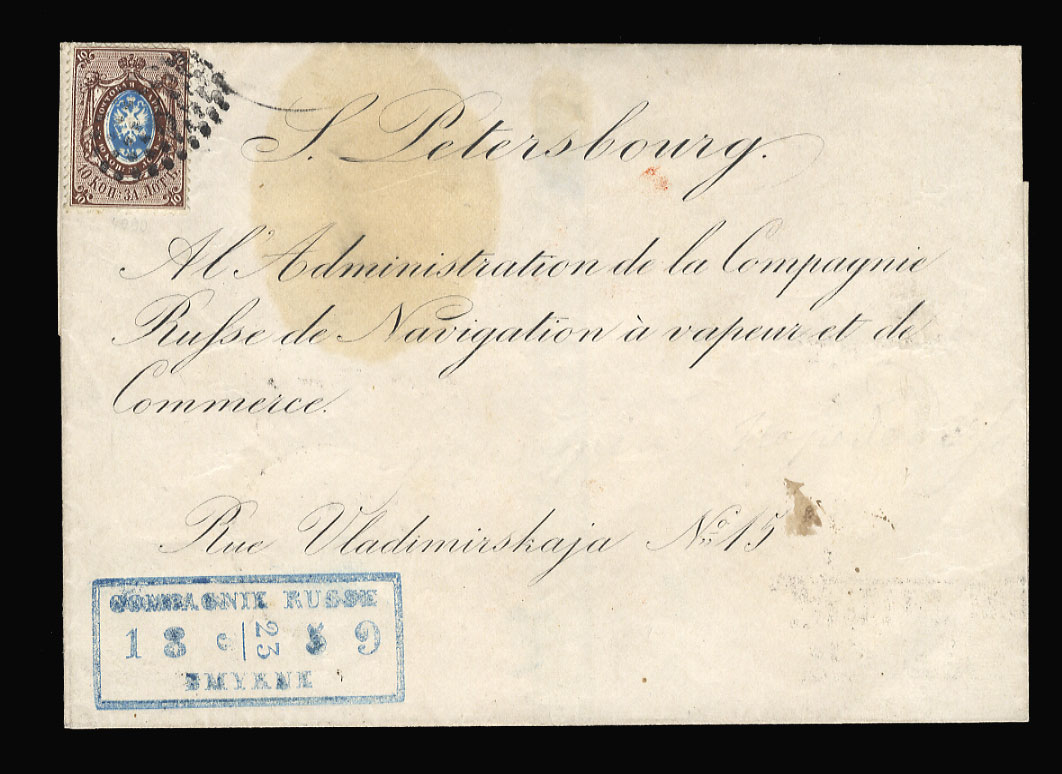 10 10
ПОЧТОВАЯ МАРКА
10 КОП. ЗА ЛОТЪ.
10 10
S. Petersbourg.
A l'Administration de la Compagnie
Russe de Navigation à vapeur et de
Commerce.
Rue Vladimirskaja No 15
COMPAGNIE RUSSE
18 23 59
SMYRNE